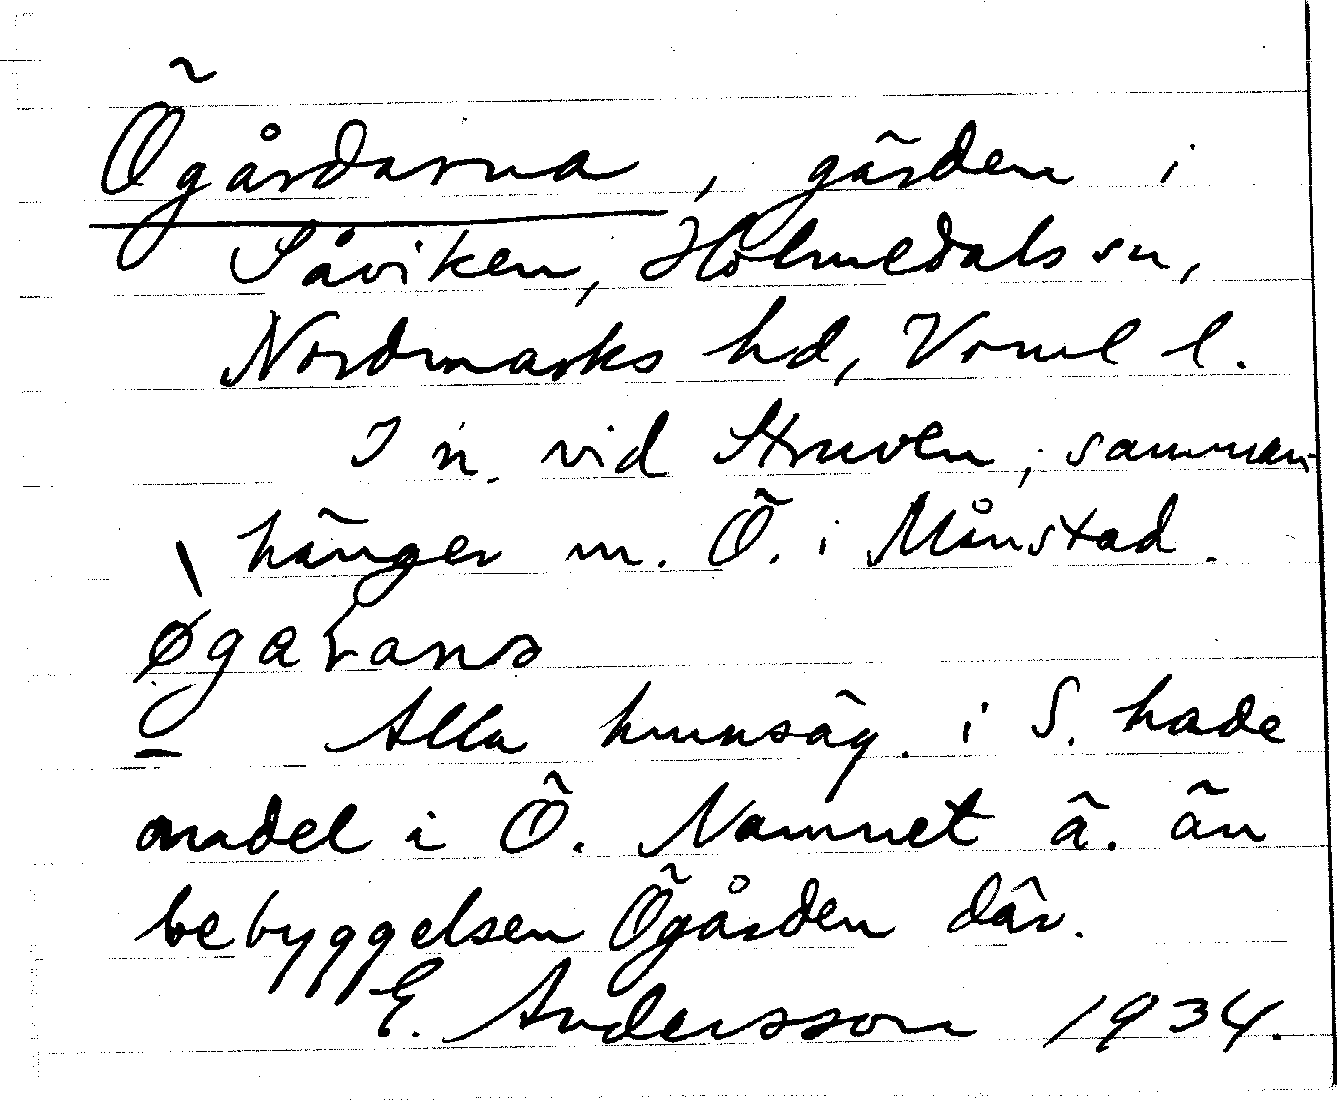 Ögårdarna, gärden i
Såviken, Holmedals sn,
Nordmarks hd, Värml l.
I n. vid Struven, samman-
hänger m. Ö. i Månstad.
øgaɽana
Alla hemsäg. i S. hade
andel i Ö. Namnet ä. än
bebyggelsen Ögården där.
E. Andersson 1934.